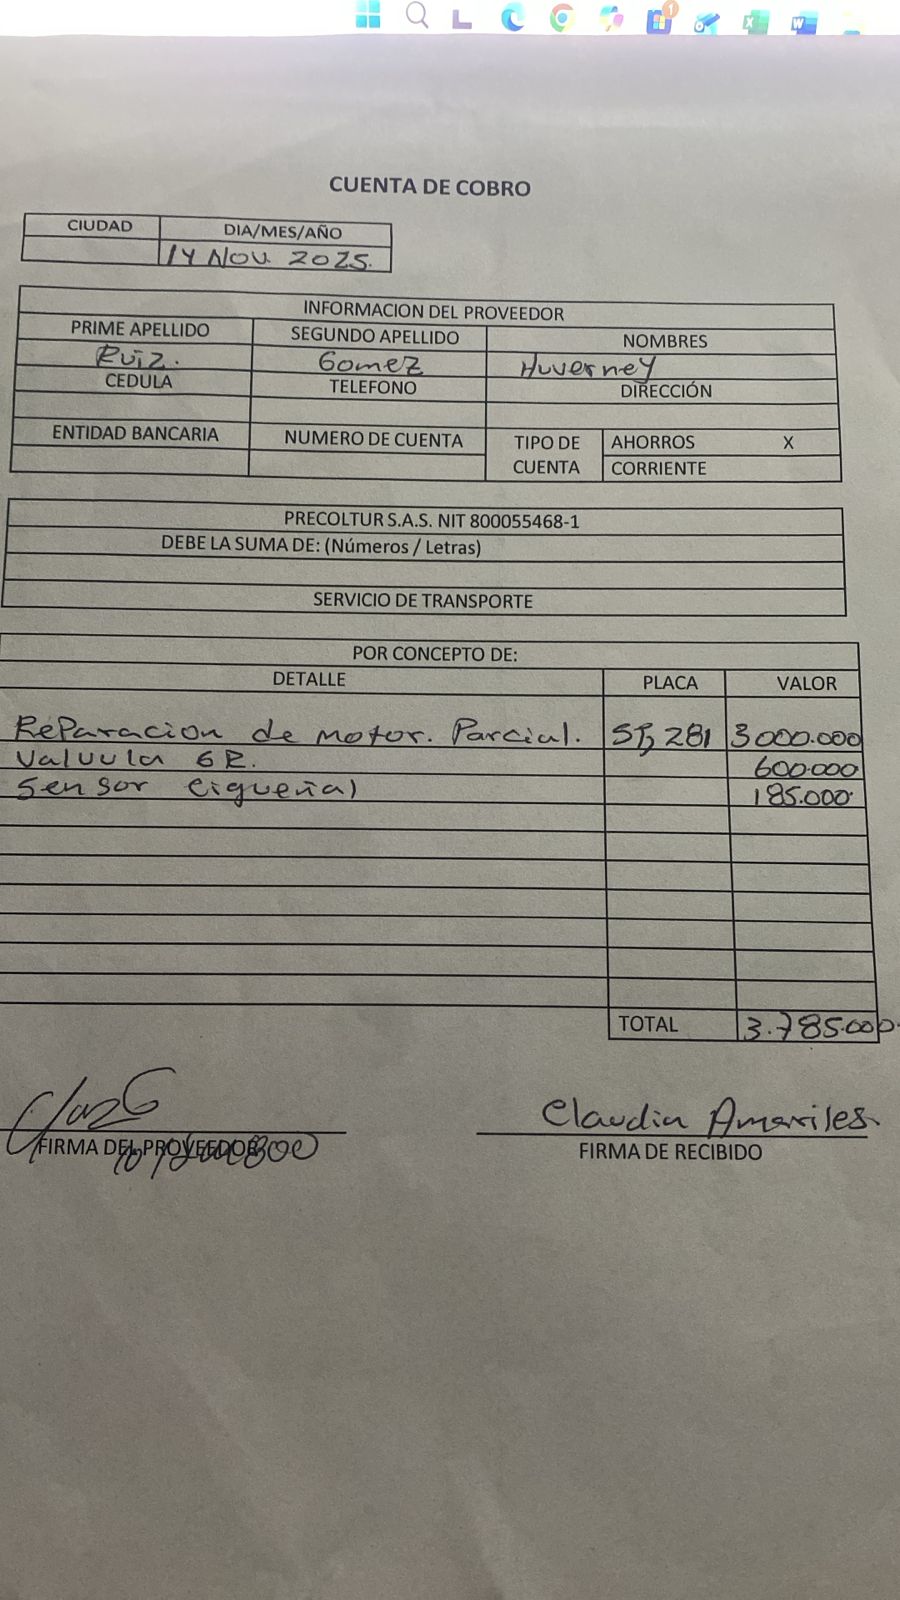 CUENTA DE COBRO
CIUDAD DIA/MES/AÑO
14 NOV. 2025.
INFORMACION DEL PROVEEDOR
PRIME APELLIDO SEGUNDO APELLIDO NOMBRES
Ruiz. Gomez Huverney
CEDULA TELEFONO DIRECCIÓN
ENTIDAD BANCARIA NUMERO DE CUENTA TIPO DE CUENTA AHORROS X
CORRIENTE
PRECOLTUR S.A.S. NIT 800055468-1
DEBE LA SUMA DE: (Números / Letras)
SERVICIO DE TRANSPORTE
POR CONCEPTO DE:
DETALLE PLACA VALOR
Reparacion de motor. Parcial. 281 3000.000
Valvula 600.000
Sensor cigueñal 185.000.
TOTAL 3.785.000.
Claudia Amariles.
FIRMA DEL PROVEEDOR FIRMA DE RECIBIDO